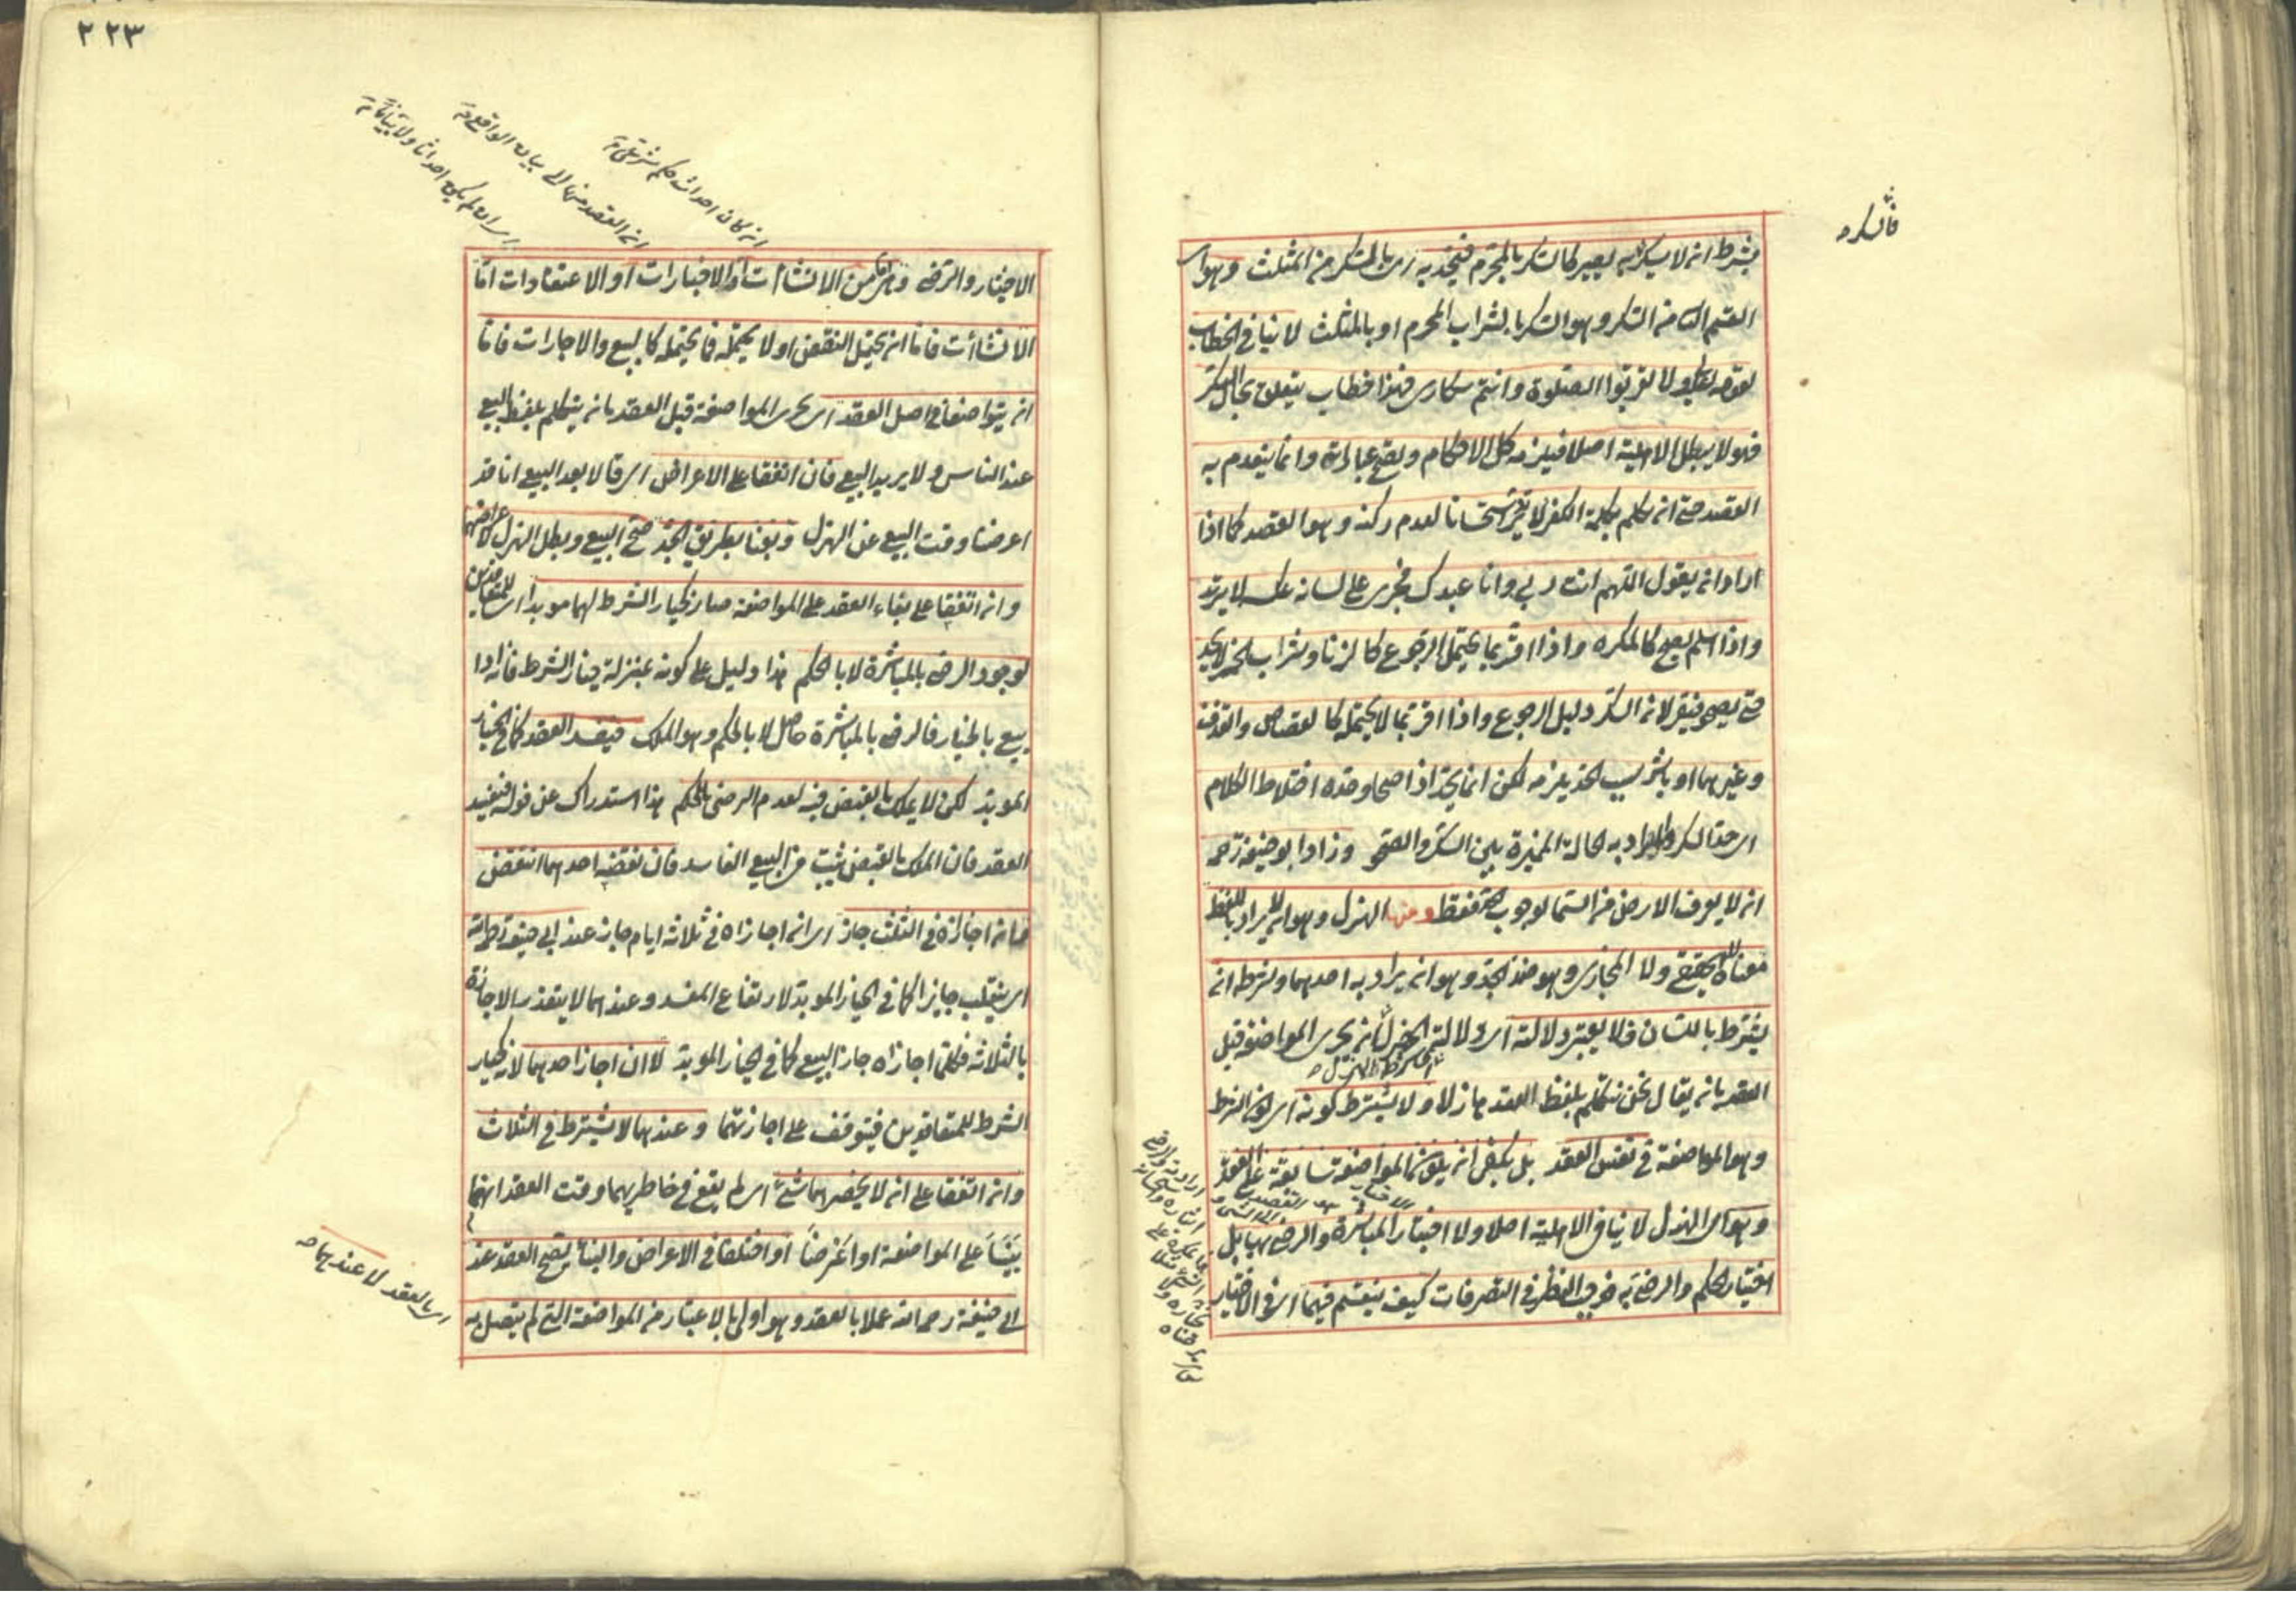 فالسكر
بشرط ان لا يسكر به يصير كالسكر بالمحرم فيحد به اى بالسكر من المثلث وهو اى
القسم الثانى من السكر وهو السكر بالشراب المحرم او بالمثلث لا ينافى الخطاب
لقوله تعالى ولا تقربوا الصلوة وانتم سكارى فهذا خطاب يتعلق بحال السكر
فهو لا يبطل الاهلية اصلا فيلزمه كل الاحكام ويصح عباراته وانما ينعدم به
القصد حتى ان تكلم بكلمة الكفر لا يرتد استحسانا لعدم ركنه وهو القصد كما اذا
اراد ان يقول اللهم انت ربى وانا عبدك فجرى على لسانه عكسه لا يرتد
واذا اسلم يصح كالمكره واذا اقر بما يحتمل الرجوع كالزنا وشراب الخمر لا يحد
حتى يصحو فيقر لان السكر دليل الرجوع واذا اقر بما لا يحتمله كالقصاص والقذف
وغيرهما او باشر سبب الحد يلزمه لكن انما يحد اذا صحا وحده اختلاط الكلام
اى حد السكر والمراد به الحالة المميزة بين السكر والصحو وزاد ابو حنيفة رحمه
ان لا يعرف الارض من السماء لوجوب الحد فقط ومنها الهزل وهو ان لا يراد باللفظ
معناه الحقيقى ولا المجازى وهو ضد الجد وهو ان يراد به احدهما وشرطه ان
يشترط باللسان فلا يعتبر دلالته اى دلالة الهزل بان يجرى المواضعة قبل
العقد بان يقال نحن نتكلم بلفظ العقد هازلا ولا يشترط كونه اى كون الشرط
وهو المواضعة فى نفس العقد بل يكفى ان يكون المواضعة سابقة على العقد
وهو اى الهزل لا ينافى الاهلية اصلا ولا اختيار المباشرة والرضى بها بل
اختيار الحكم والرضى به فوجب النظر فى التصرفات كيف ينقسم فيهما اى فى الاختيار
٢٢٣
ان كان احداث حكم شرعى
ان القصد منها الى بيان الواقع
اى ان لم يكن احداثا ولا بيانا
الاختيار والرضى وهى اما من الانشاءات او الاخبارات او الاعتقادات اما
الانشاءت فاما ان يحتمل النقض او لا يحتمله فما يحتمله كالبيع والاجارات فاما
ان يتواضعا فى اصل العقد اى يجرى المواضعة قبل العقد بان يتكلم بلفظ البيع
عند الناس ولا يريد البيع فان اتفقا على الاعراض اى قالا بعد البيع انا قد
اعرضنا وقت البيع عن الهزل وبعنا بطريق الجد صح البيع وبطل الهزل لاعراضهما
وان اتفقا على بناء العقد على المواضعة صار كخيار الشرط لهما موبدا اى للمتعاقدين
لوجود الرضى بالمباشرة لا بالحكم هذا دليل على كونه بمنزلة خيار الشرط فانه اذا
بيع بالخيار فالرضى بالمباشرة حاصل لا بالحكم وهو الملك فيفسد العقد كما فى الخيار
الموبد لكن لا يملك بالقبض فيه لعدم الرضى بالحكم هذا استدراك عن قوله فيفسد
العقد فان الملك بالقبض يثبت فى البيع الفاسد فان نقضه احدهما انتقض
فان اجازاه فى الثلث جاز اى ان اجازاه فى ثلاثة ايام جاز عند ابى حنيفة رحمه الله
اى ينقلب جايزا كما فى الخيار الموبد لارتفاع المفسد وعندهما لا يتقدر الاجازة
بالثلاثة فكلما اجازاه جاز البيع كما فى الخيار الموبد لا ان اجاز احدهما لانه كخيار
الشرط للمتعاقدين فيتوقف على اجازتهما وعندهما لا يشترط فى الثلاث
وان اتفقا على ان لا يحضرهما شئ اى لم يقع فى خاطريهما وقت العقد انهما
بنيا على المواضعة او اعرضا او اختلفا فى الاعراض والبناء يصح العقد عند
ابى حنيفة رحمه الله عملا بالعقد وهو اولى بالاعتبار من المواضعة التى لم يتصل به
اى بالعقد لا عندهما